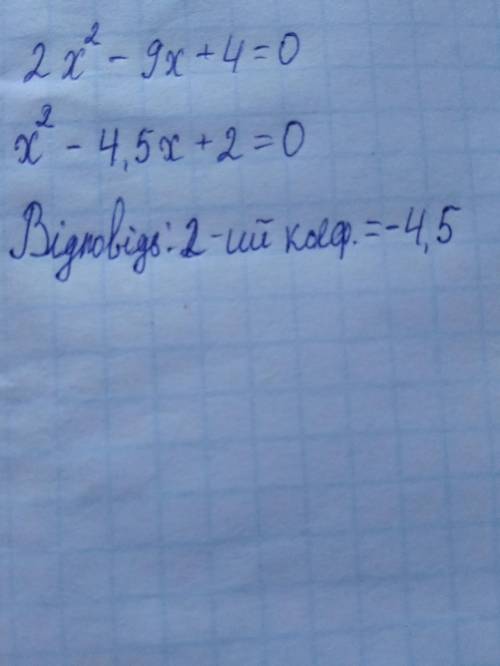 2x² - 9x + 4 = 0
x² - 4,5x + 2 = 0
Відповідь: 2-ий коеф. = -4,5